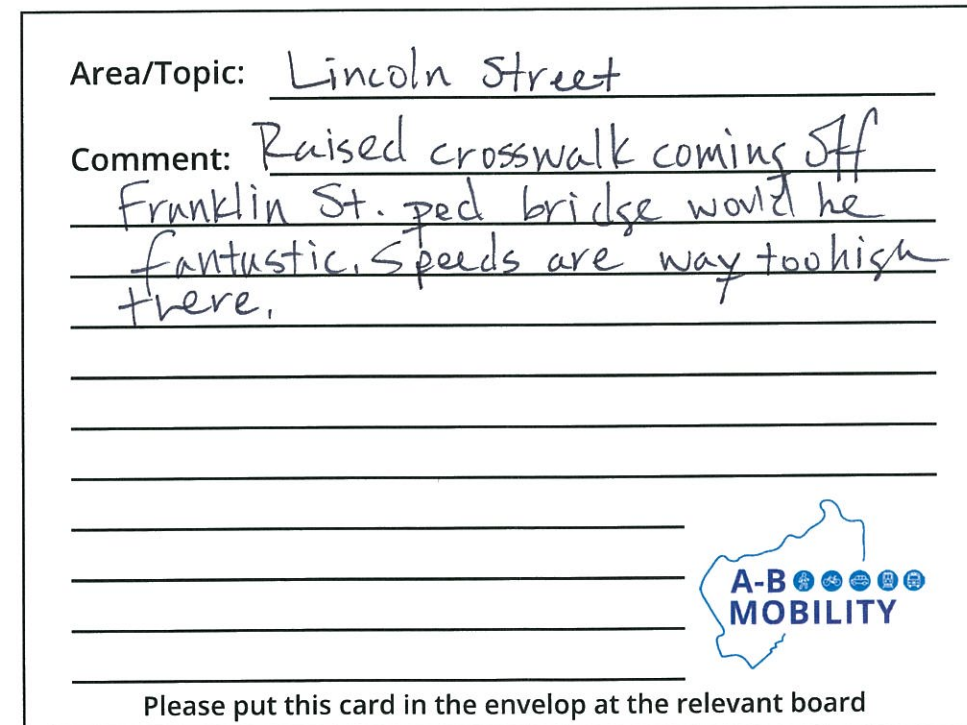 Area/Topic: Lincoln Street
Comment: Raised crosswalk coming off
Franklin St. ped bridge would be
fantastic. Speeds are way too high
there.
A-B
MOBILITY
Please put this card in the envelop at the relevant board